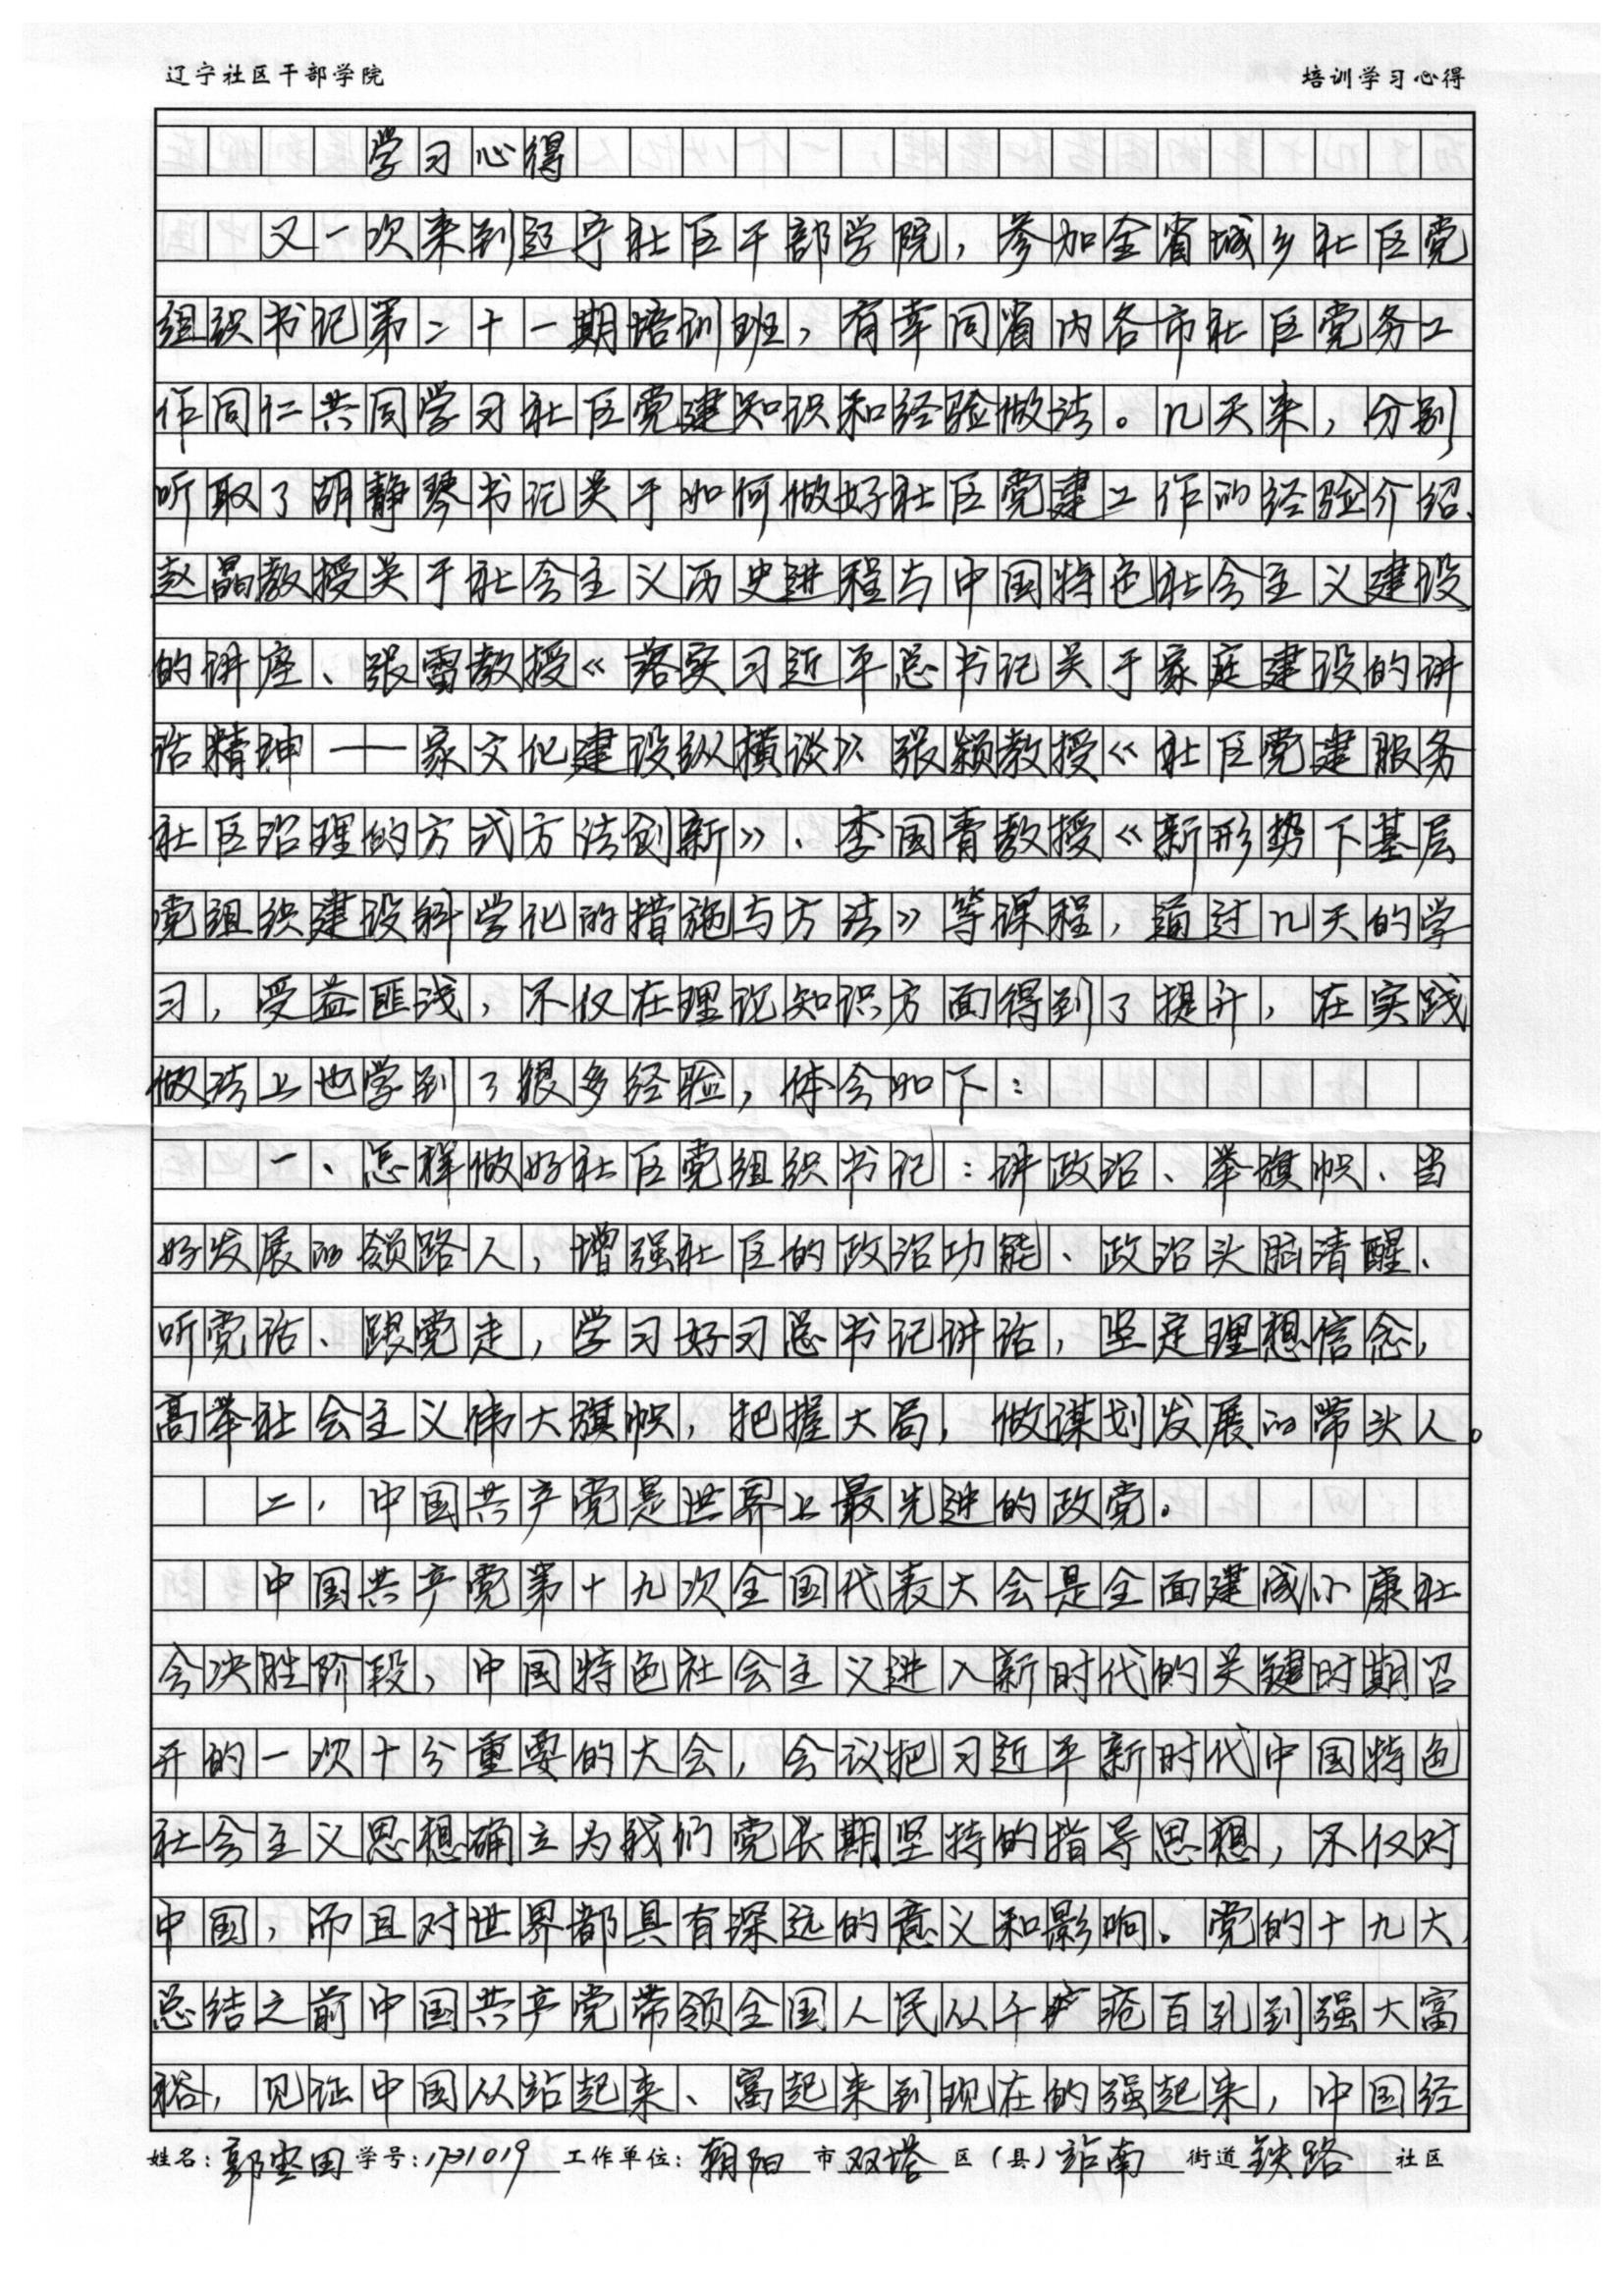 辽宁社区干部学院 培训学习心得
学习心得
又一次来到辽宁社区干部学院，参加全省城乡社区党
组织书记第二十一期培训班，有幸同省内各市社区党务工
作同仁共同学习社区党建知识和经验做法。几天来，分别
听取了胡静琴书记关于如何做好社区党建工作的经验介绍、
赵晶教授关于社会主义历史进程与中国特色社会主义建设
的讲座、张雷教授《落实习近平总书记关于家庭建设的讲
话精神——家文化建设纵横谈》、张颖教授《社区党建服务
社区治理的方式方法创新》、李国青教授《新形势下基层
党组织建设科学化的措施与方法》等课程，通过几天的学
习，受益匪浅，不仅在理论知识方面得到了提升，在实践
做法上也学到了很多经验，体会如下：
一、怎样做好社区党组织书记：讲政治、举旗帜、当
好发展的领路人，增强社区的政治功能、政治头脑清醒、
听党话、跟党走，学习好习总书记讲话，坚定理想信念，
高举社会主义伟大旗帜，把握大局，做谋划发展的带头人。
二、中国共产党是世界上最先进的政党。
中国共产党第十九次全国代表大会是全面建成小康社
会决胜阶段，中国特色社会主义进入新时代的关键时期召
开的一次十分重要的大会，会议把习近平新时代中国特色
社会主义思想确立为我们党长期坚持的指导思想，不仅对
中国，而且对世界都具有深远的意义和影响。党的十九大，
总结之前中国共产党带领全国人民从千疮百孔到强大富
裕，见证中国从站起来、富起来到现在的强起来，中国经
姓名：郭 学号：1721019 工作单位：朝阳市双塔区（县）站南街道铁路社区